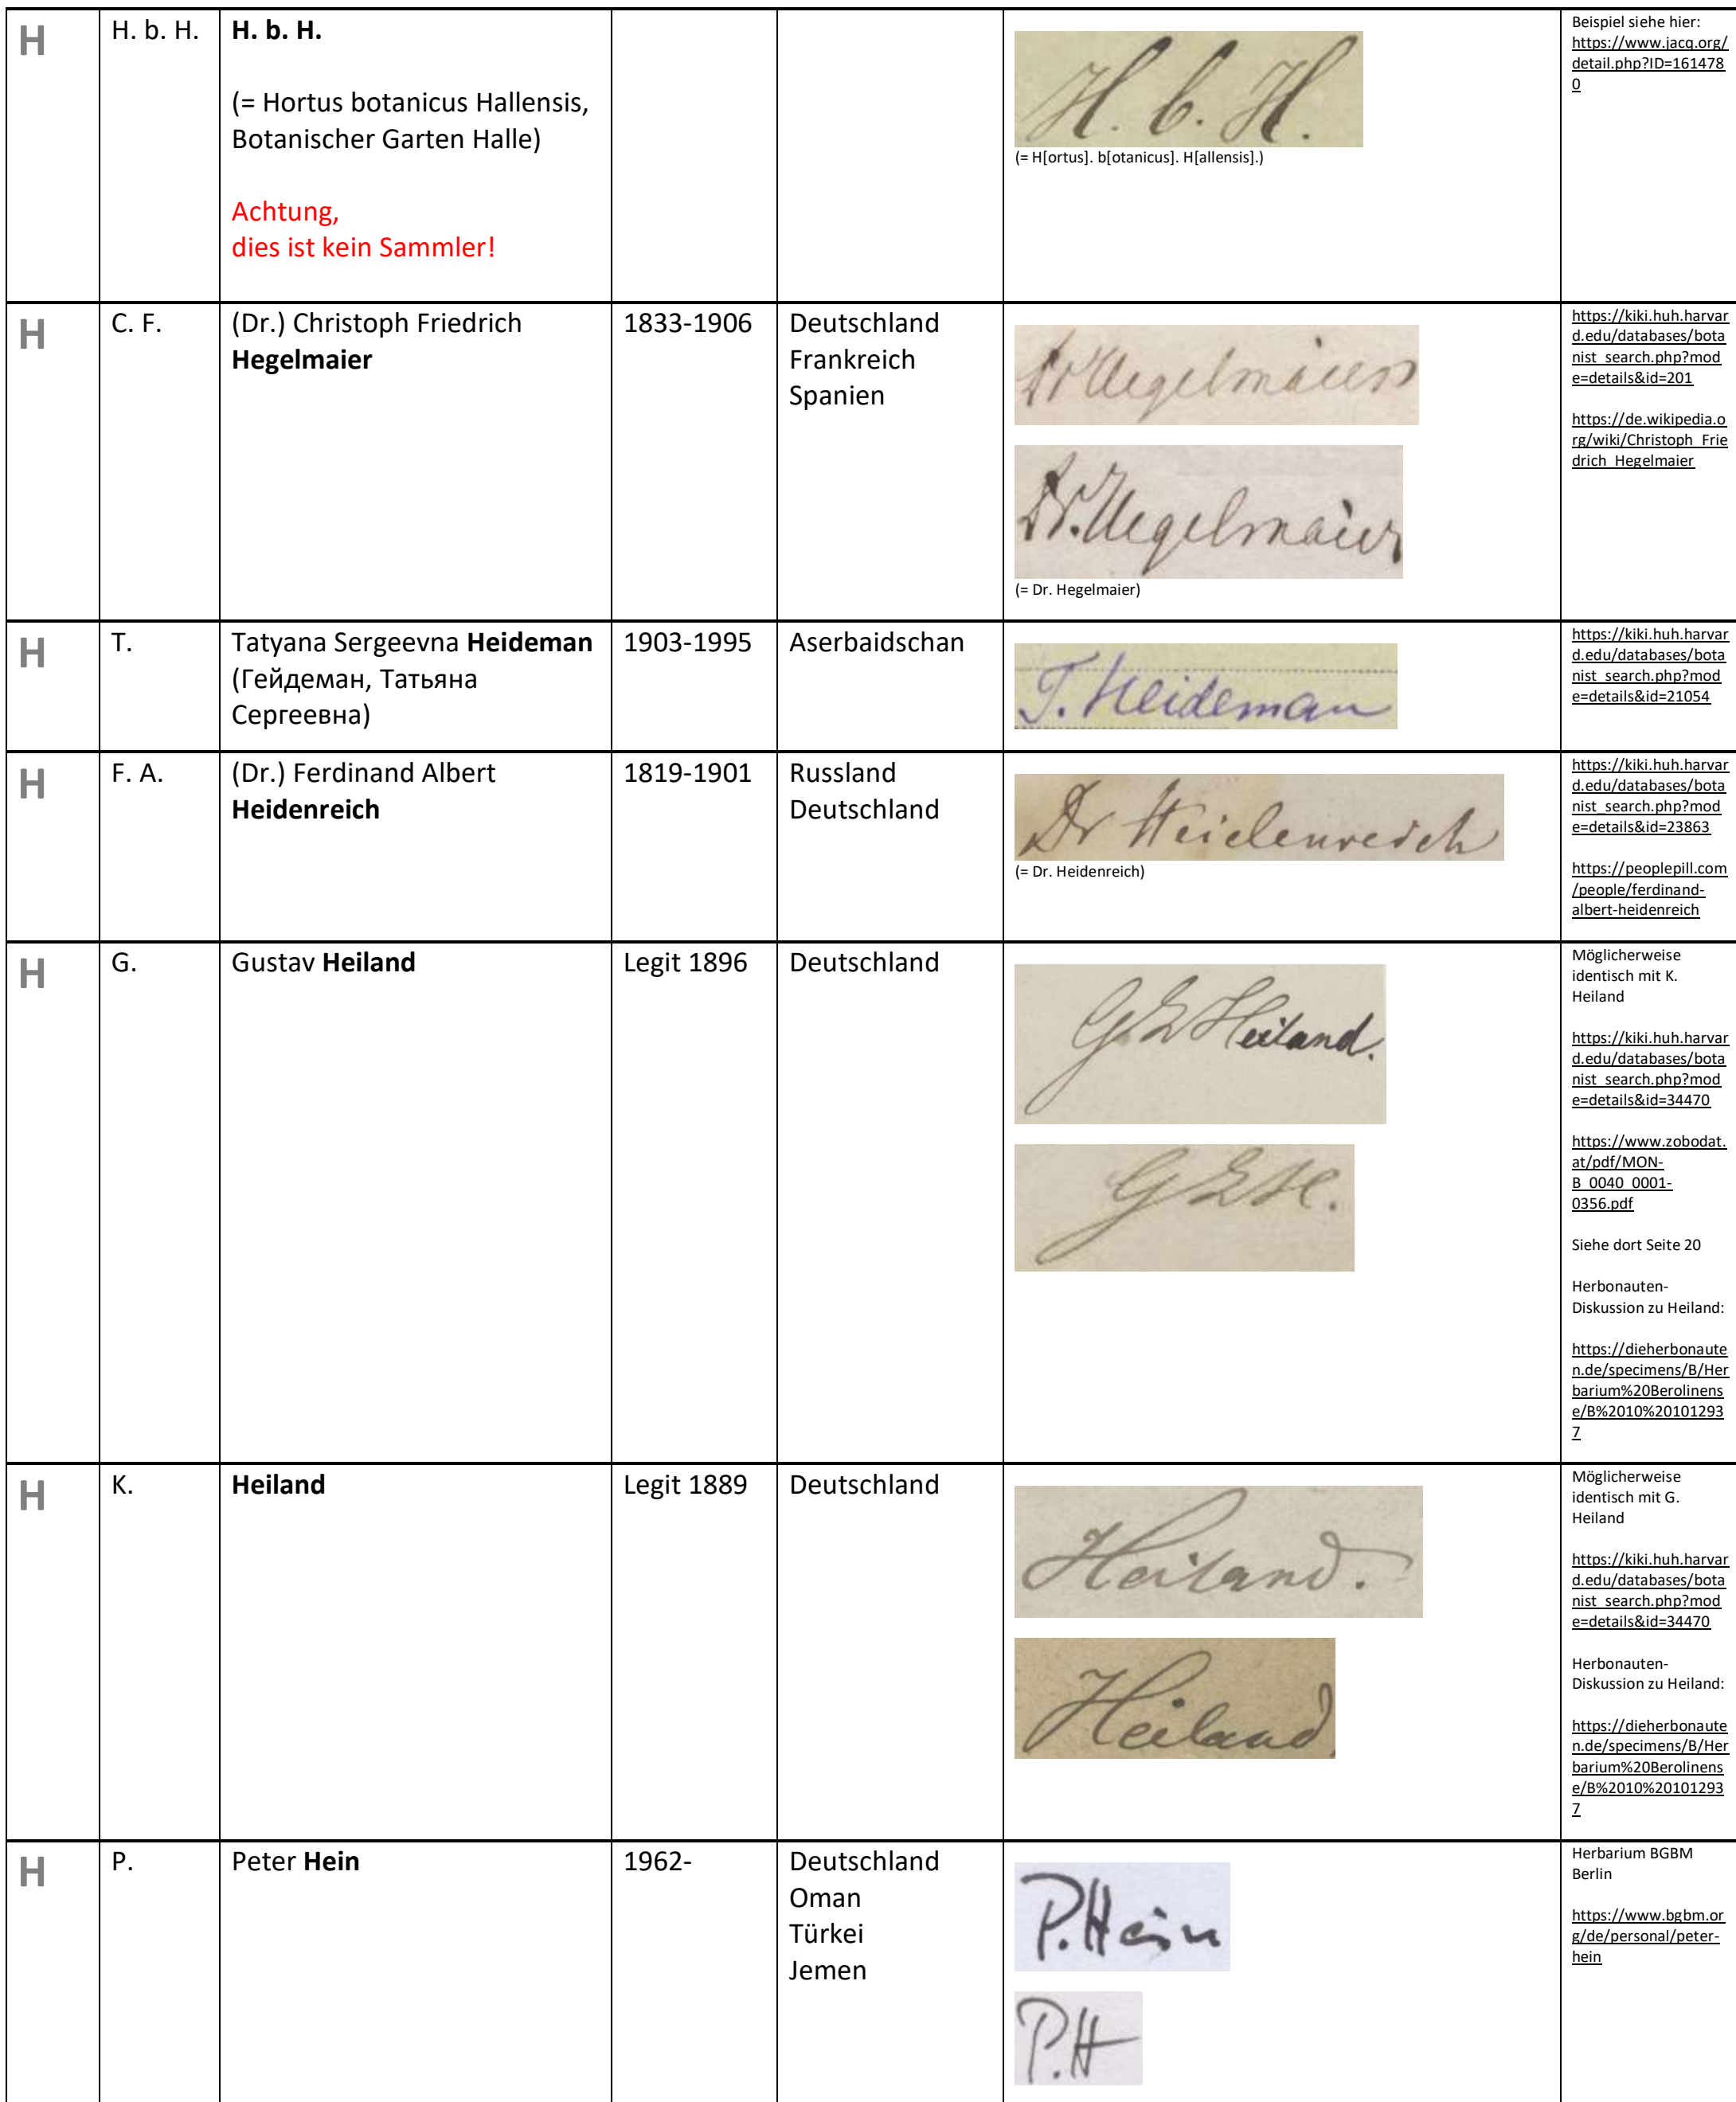 H
H. b. H.
H. b. H.
(= Hortus botanicus Hallensis,
Botanischer Garten Halle)
Achtung,
dies ist kein Sammler!
H. b. H.
(= H[ortus]. b[otanicus]. H[allensis].)
Beispiel siehe hier:
https://www.jacq.org/
detail.php?ID=161478
0
H
C. F.
(Dr.) Christoph Friedrich
Hegelmaier
1833-1906
Deutschland
Frankreich
Spanien
Dr Hegelmaier
Dr. Hegelmaier
(= Dr. Hegelmaier)
https://kiki.huh.harvar
d.edu/databases/bota
nist_search.php?mod
e=details&id=201
https://de.wikipedia.o
rg/wiki/Christoph_Frie
drich_Hegelmaier
H
T.
Tatyana Sergeevna Heideman
(Гейдеман, Татьяна
Сергеевна)
1903-1995
Aserbaidschan
T. Heideman
https://kiki.huh.harvar
d.edu/databases/bota
nist_search.php?mod
e=details&id=21054
H
F. A.
(Dr.) Ferdinand Albert
Heidenreich
1819-1901
Russland
Deutschland
Dr Heidenreich
(= Dr. Heidenreich)
https://kiki.huh.harvar
d.edu/databases/bota
nist_search.php?mod
e=details&id=23863
https://peoplepill.com
/people/ferdinand-
albert-heidenreich
H
G.
Gustav Heiland
Legit 1896
Deutschland
Heiland.
Möglicherweise
identisch mit K.
Heiland
https://kiki.huh.harvar
d.edu/databases/bota
nist_search.php?mod
e=details&id=34470
https://www.zobodat.
at/pdf/MON-
B_0040_0001-
0356.pdf
Siehe dort Seite 20
Herbonauten-
Diskussion zu Heiland:
https://dieherbonaute
n.de/specimens/B/Her
barium%20Berolinens
e/B%2010%20101293
7
H
K.
Heiland
Legit 1889
Deutschland
Heiland.
Heiland
Möglicherweise
identisch mit G.
Heiland
https://kiki.huh.harvar
d.edu/databases/bota
nist_search.php?mod
e=details&id=34470
Herbonauten-
Diskussion zu Heiland:
https://dieherbonaute
n.de/specimens/B/Her
barium%20Berolinens
e/B%2010%20101293
7
H
P.
Peter Hein
1962-
Deutschland
Oman
Türkei
Jemen
P. Hein
P. H
Herbarium BGBM
Berlin
https://www.bgbm.or
g/de/personal/peter-
hein